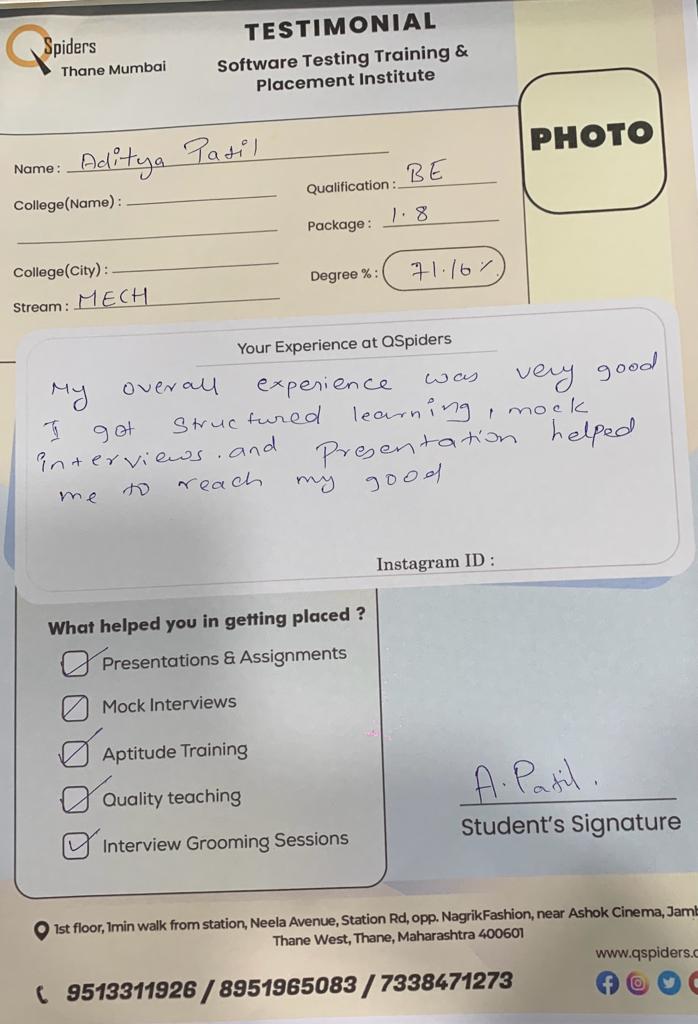 QSpiders
Thane Mumbai
TESTIMONIAL
Software Testing Training &
Placement Institute
PHOTO
Name: Aditya Patil
College(Name) :
Qualification : BE
Package : 1.8
College(City) :
Degree % : 71.16%
Stream : MECH
Your Experience at QSpiders
My overall experience was very good
I got structured learning, mock
interviews. and Presentation helped
me to reach my good
Instagram ID :
What helped you in getting placed ?
Presentations & Assignments
Mock Interviews
Aptitude Training
Quality teaching
Interview Grooming Sessions
A. Patil.
Student's Signature
1st floor, 1min walk from station, Neela Avenue, Station Rd, opp. NagrikFashion, near Ashok Cinema, Jamb
Thane West, Thane, Maharashtra 400601
www.qspiders.c
9513311926 / 8951965083 / 7338471273